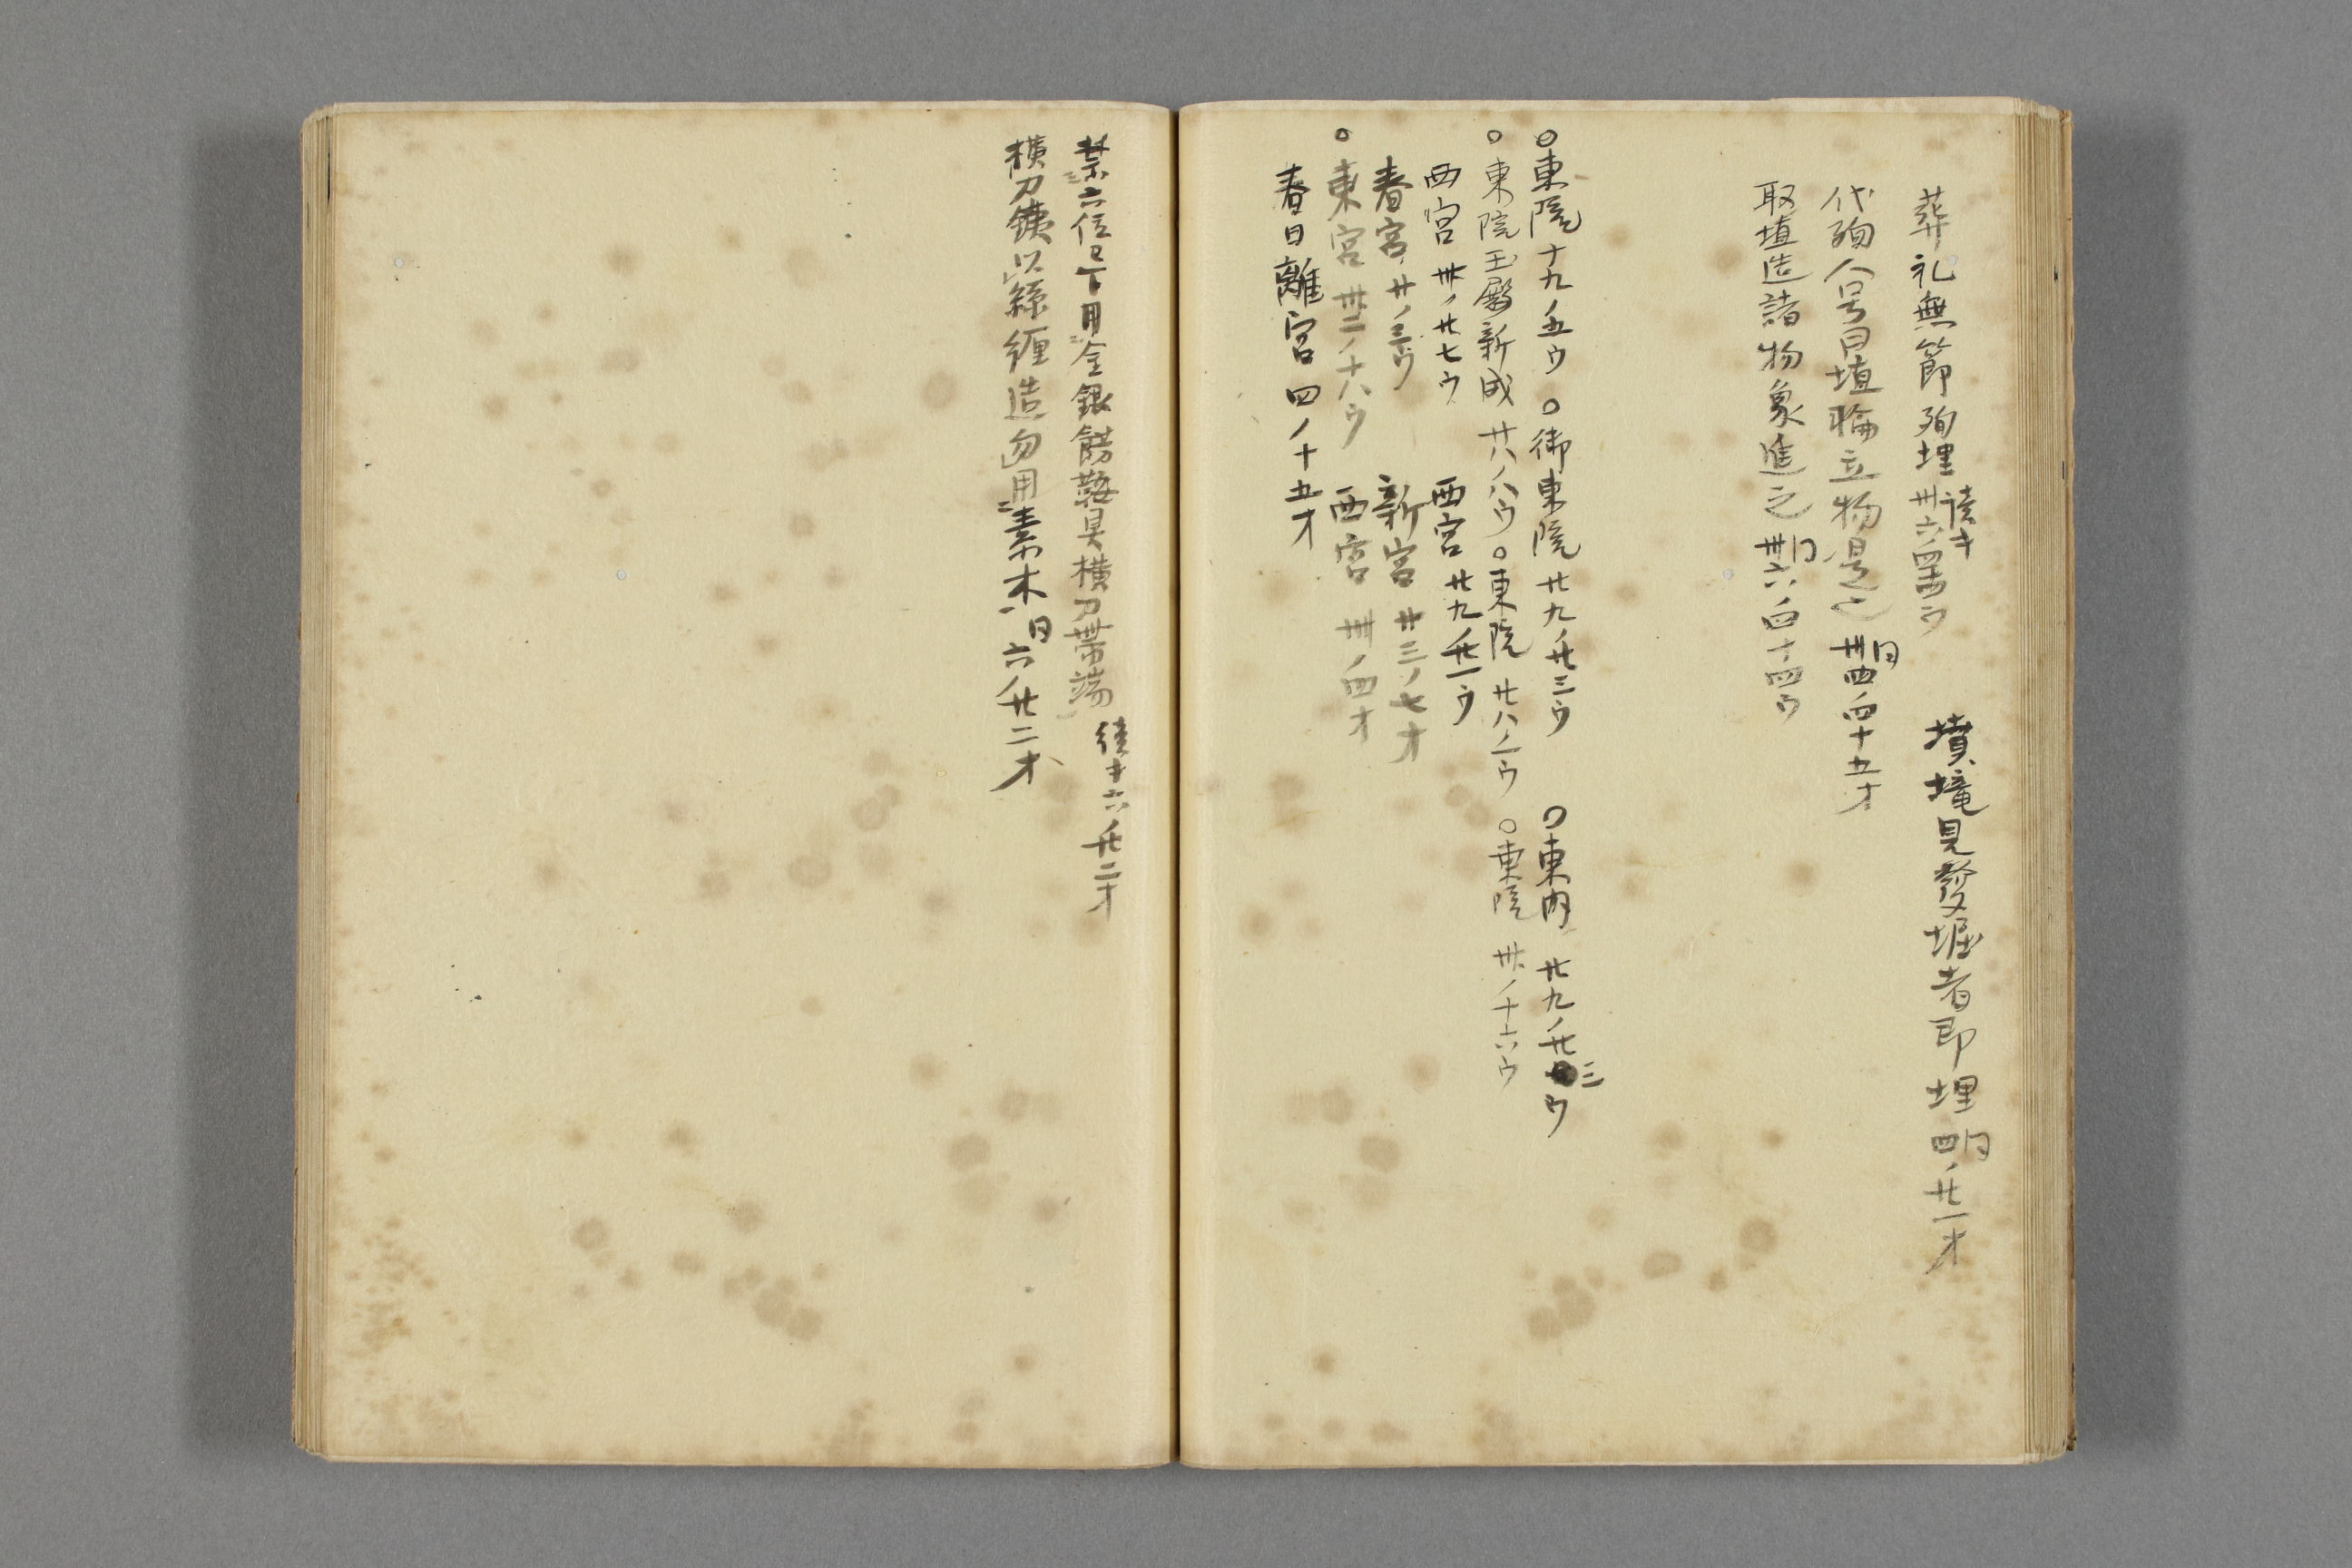 葬礼無節殉埋 續キ 卅六ノ四十四ウ　墳墓見發堀者即埋 同四ノ廿一オ
代殉人号曰埴輪立物是也 同卅四ノ四十五オ
取埴造諸物象進之 同卅六ノ四十四ウ
○東院十九ノ五ウ ○御東院廿九ノ廿三ウ ○東内 廿九ノ廿三ウ
○東院玉殿新成 廿八ノ八ウ ○東院 廿八ノ二ウ ○東院 卅ノ十六ウ
西宮 卅ノ廿七ウ　西宮 廿九ノ廿一ウ
春宮 廿ノ三ウ　新宮 廿三ノ七オ
○東宮 卅二ノ十八ウ　西宮 卅ノ四オ
春日離宮 四ノ十五オ
禁六位已下用金銀餝鞍具横刀帯端 續キ六ノ廿二オ
横刀鋏以絲纒造勿用素木 同六ノ廿二オ